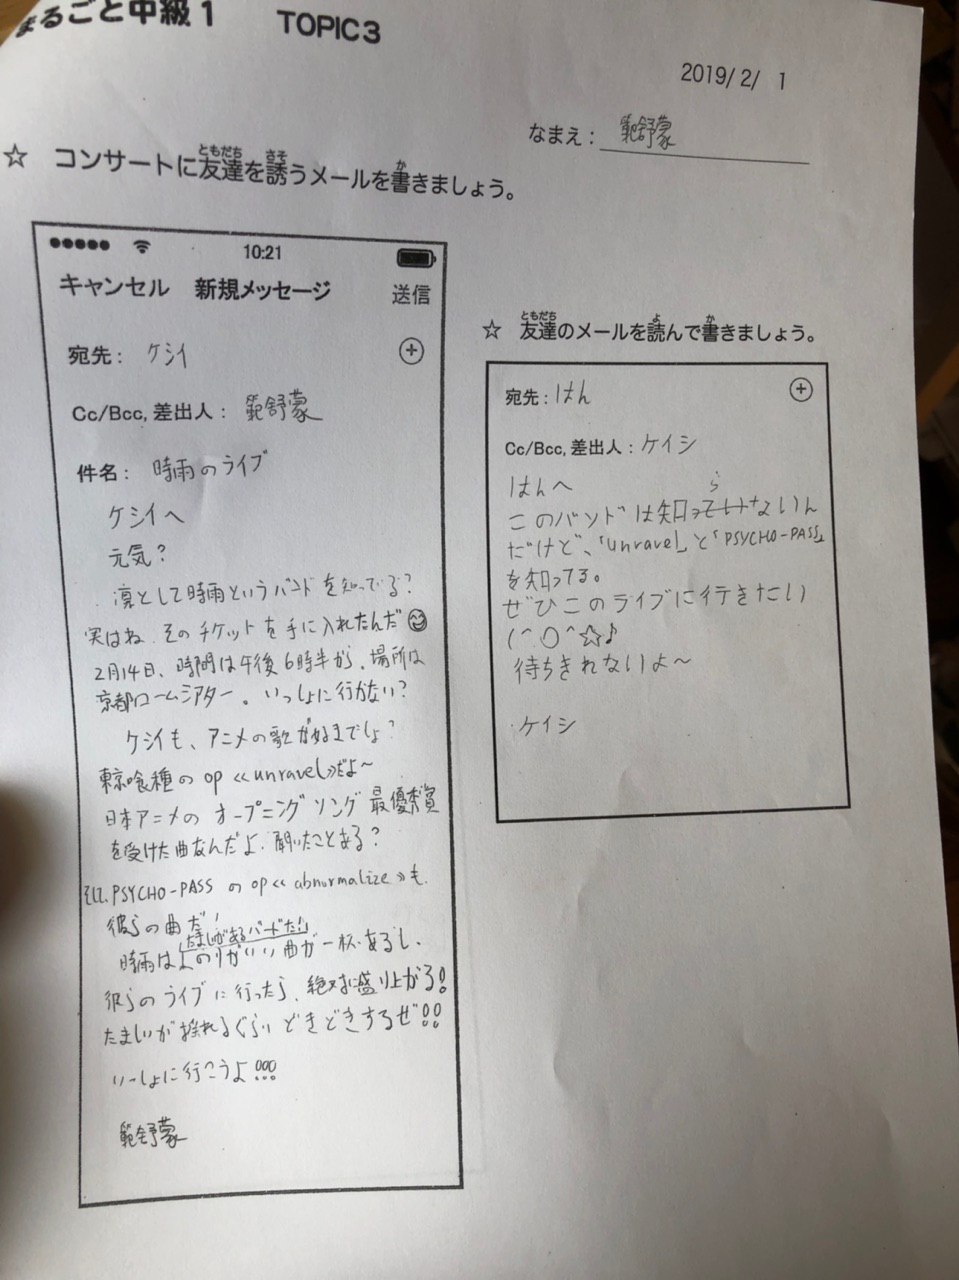 まるごと中級1 TOPIC3
2019/ 2/ 1
なまえ: 範舒蒙
☆ コンサートに友達を誘うメールを書きましょう。
ともだち さそ か
10:21
キャンセル 新規メッセージ 送信
宛先: ケシイ
Cc/Bcc, 差出人: 範舒蒙
件名: 時雨のライブ
ケシイへ
元気?
凛として時雨というバンドを知ってる?
実はね、そのチケットを手に入れたんだ
2月14日、時間は午後6時半から、場所は
京都ロームシアター。いっしょに行かない?
ケシイも、アニメの歌が好きでしょ?
東京喰種のop≪unravel≫だよ~
日本アニメのオープニングソング最優秀賞
を受けた曲なんだよ、聞いたことある?
そして、PSYCHO-PASSのop≪abnormalize≫も、
彼らの曲だ!
たましいがあるバンドだ!
時雨はノリがいい曲が一杯あるし、
彼らのライブに行ったら、絶対に盛り上がる!
たましいが揺れるぐらいどきどきするぜ!!
いっしょに行こうよ!!!
範舒蒙
☆ 友達のメールを読んで書きましょう。
ともだち よ か
宛先: はん
Cc/Bcc, 差出人: ケイシ
はんへ
このバンドは知らないん
だけど、「unravel」と「PSYCHO-PASS」
を知ってる。
ぜひこのライブに行きたい
(^○^☆♪
待ちきれないよ~
ケイシ